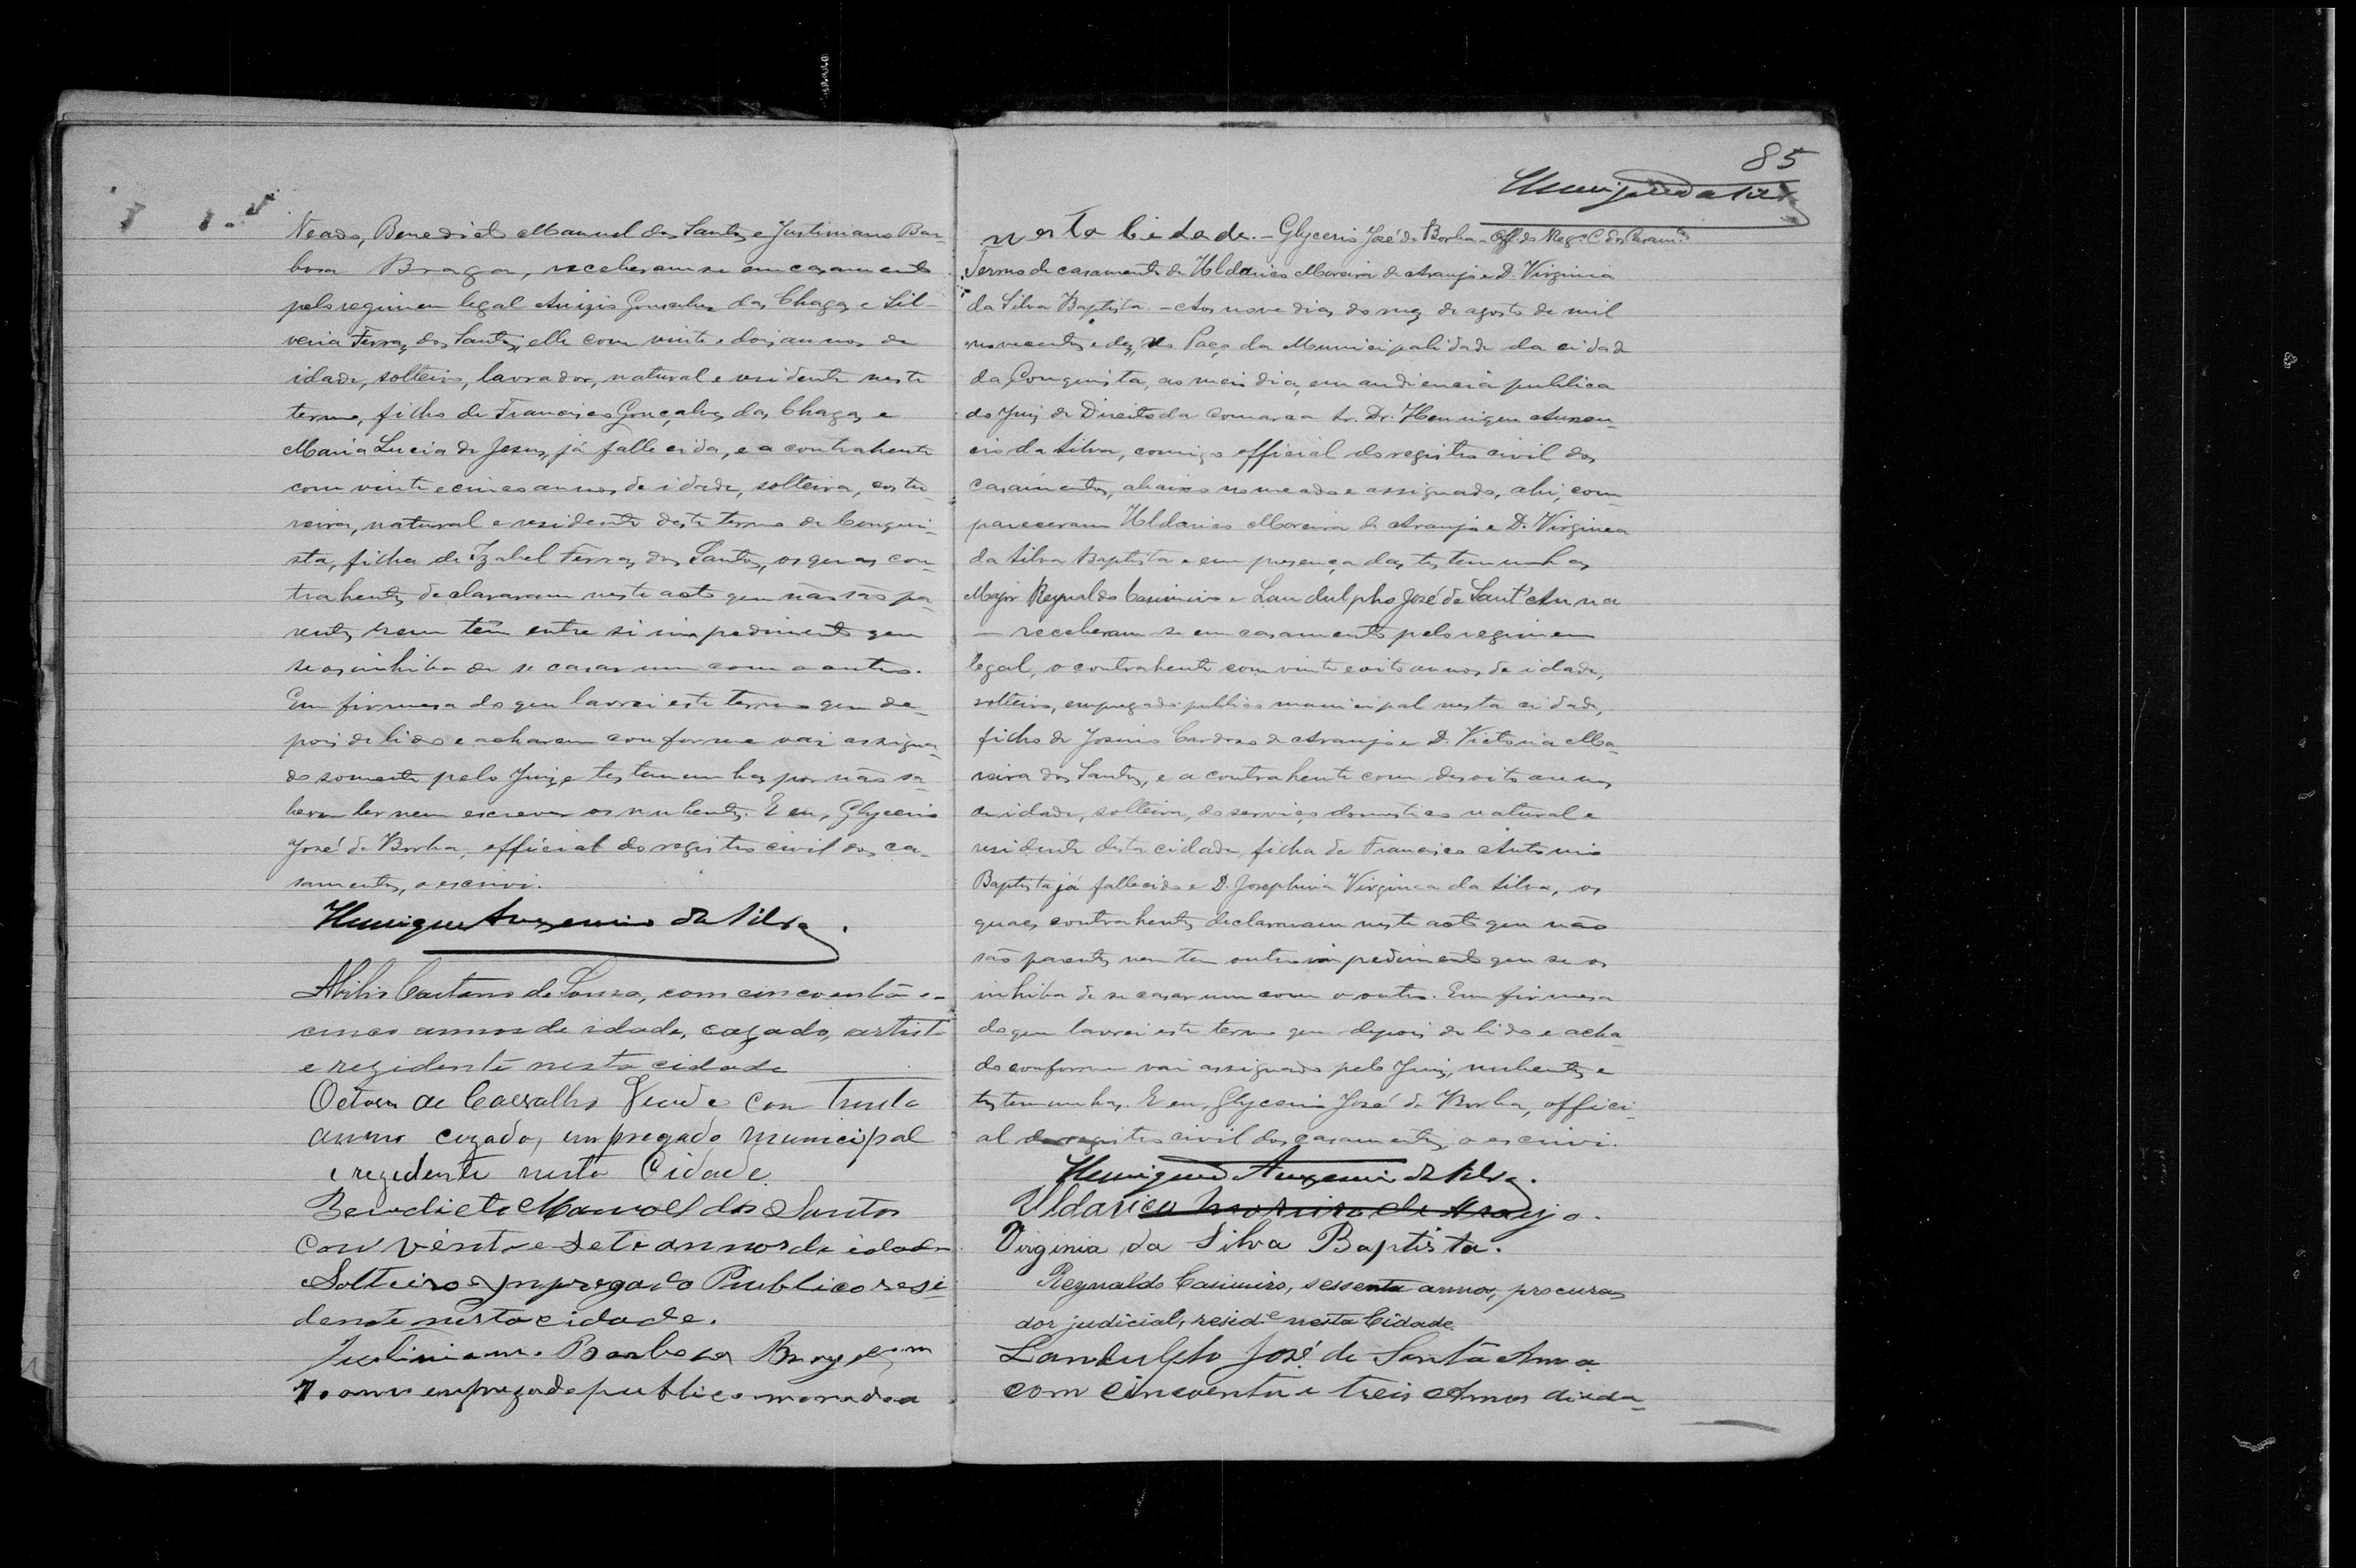 Veado, Benedicto Manuel dos Santos e Justiniano Bar-
bosa Braga, receberam-se em casamento
pelo regimen legal Anizio Gonsalves das Chagas e Sil-
veria Ferraz dos Santos, elle com vinte e dois annos de
idade, solteiro, lavrador, natural e residente neste
termo, filho de Francisco Gonçalves das Chagas e
Maria Lucia de Jesus, já fallecida, e a contrahente
com vinte e cinco annos de idade, solteira, costu-
reira, natural e residente deste termo de Conqui-
sta, filha de Izabel Ferraz dos Santos, os quaes con-
trahentes declararam neste acto que não são pa-
rentes nem têm entre si impedimento que
se os inhiba de se casar um com o outro.
Em firmesa do que lavrei este termo que de-
pois de lido e acharem conforme vai assigna-
do somente pelo Juiz e testemunhas por não sa-
berem ler nem escrever os nubentes. E eu, Glycerio
José de Borba, official do registro civil dos ca-
samentos, o escrivi.
Henrique Auxencio da Silva.
Abilio Caetano de Souza, com cincoenta e
cinco annos de idade, cazado, artista
e rezidente nesta cidade
Octavio de Carvalho Veado com Trinta
annos cazado, empregado municipal
e rezidente nesta Cidade
Benedicto Manoel dos Santos
com vente e sete annos de idade
Solteiro empregado Publico resi-
dente nesta cidade.
Justiniano Barbosa Braga com
70 anno empregado publico morador
85
Henrique da Silva
nesta Cidade. - Glycerio José de Borba - Off. do Reg. C. dos Casam.tos
Termo de casamento de Uldarico Moreira de Araujo e D. Virginia
da Silva Baptista. - Aos nove dias do mez de agosto de mil
novecentos e dez, no Paço da Municipalidade da cidade
da Conquista, ao meio dia, em audiencia publica
do Juiz de Direito da Comarca Sr. Dr. Henrique Auxen-
cio da Silva, comigo official do registro civil dos
casamentos, abaixo nomeado e assignado, ahi, com-
pareceram Uldarico Moreira de Araujo e D. Virginea
da Silva Baptista e em presença das testemunhas
Major Reynaldo Casimiro e Landulpho José de Sant'Anna
— receberam-se em casamento pelo regimen
legal, o contrahente com vinte e oito annos de idade,
solteiro, empregado publico municipal nesta cidade,
filho de Josino Cardoso de Araujo e D. Victoria Mo-
reira dos Santos, e a contrahente com desoito annos
de idade, solteira, do serviço domestico natural e
residente desta cidade, filha de Francisco Antonio
Baptista já fallecido e D. Josephina Virginea da Silva, os
quaes contrahentes declararam neste acto que não
são parentes nem tem outro impedimento que se os
inhiba de se casar um com o outro. Em firmesa
do que lavrei este termo que depois de lido e acha-
do conforme vai assignado pelo Juiz, nubentes e
testemunhas. E eu, Glycerio José de Borba, offici-
al do registro civil dos casamentos, o escrivi.
Henrique Auxencio da Silva.
Uldarico Moreira de Araujo.
Virginia da Silva Baptista.
Reynaldo Casimiro, sessenta annos, procura-
dor judicial, resid.e nesta Cidade.
Landulpho José de Santa Anna
com cincoenta e treis Annos de ida-